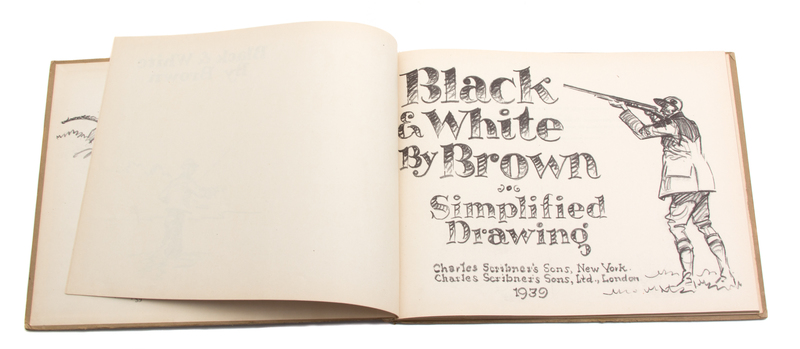 Black
& White
By Brown
Simplified
Drawing
Charles Scribner's Sons, New York.
Charles Scribner's Sons, Ltd., London
1939